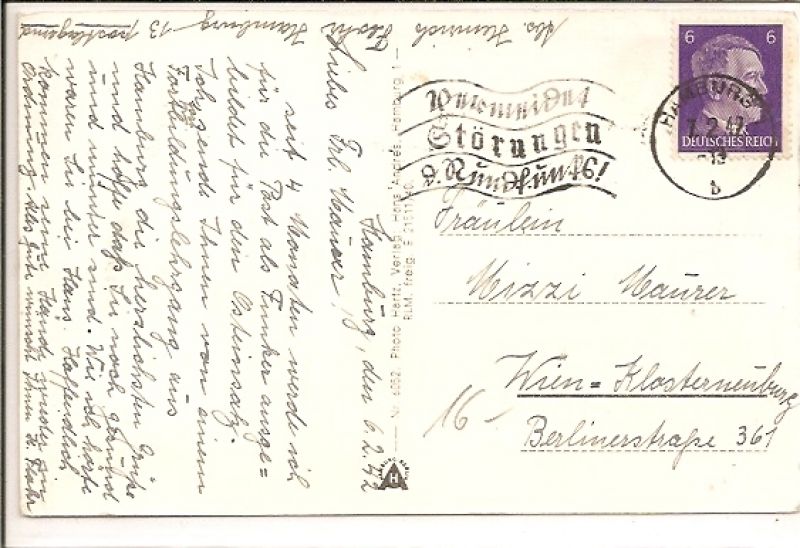 Abs. Heinrich
Hamburg - 13 postlagernd
Hamburg, den 6.2.42
Liebes Frl. Maurer!
seit 4 Monaten werde ich
für die Post als Funker ausge=
bildet für den Osteinsatz.
Ich sende Ihnen von einem
Fortbildungslehrgang aus
Hamburg die herzlichsten Grüße
und hoffe daß Sie noch gesund
und munter sind. Wie ich hörte
waren Sie bei Hans. Hoffendlich
kommen seine Hände wieder in
Ordnung. Alles gute wünscht Ihnen H.
Nr. 6052 Photo Hartz, Verlag Hans Andres, Hamburg 1
RLM. freig. S
6 6
DEUTSCHES REICH
HAMBURG
7.2.42
13
b
Vermeidet
Störungen
d. Rundfunks!
Fräulein
Mizzi Maurer
Wien = Klosterneuburg
Berlinerstraße 361
16-
HAMBURG
A